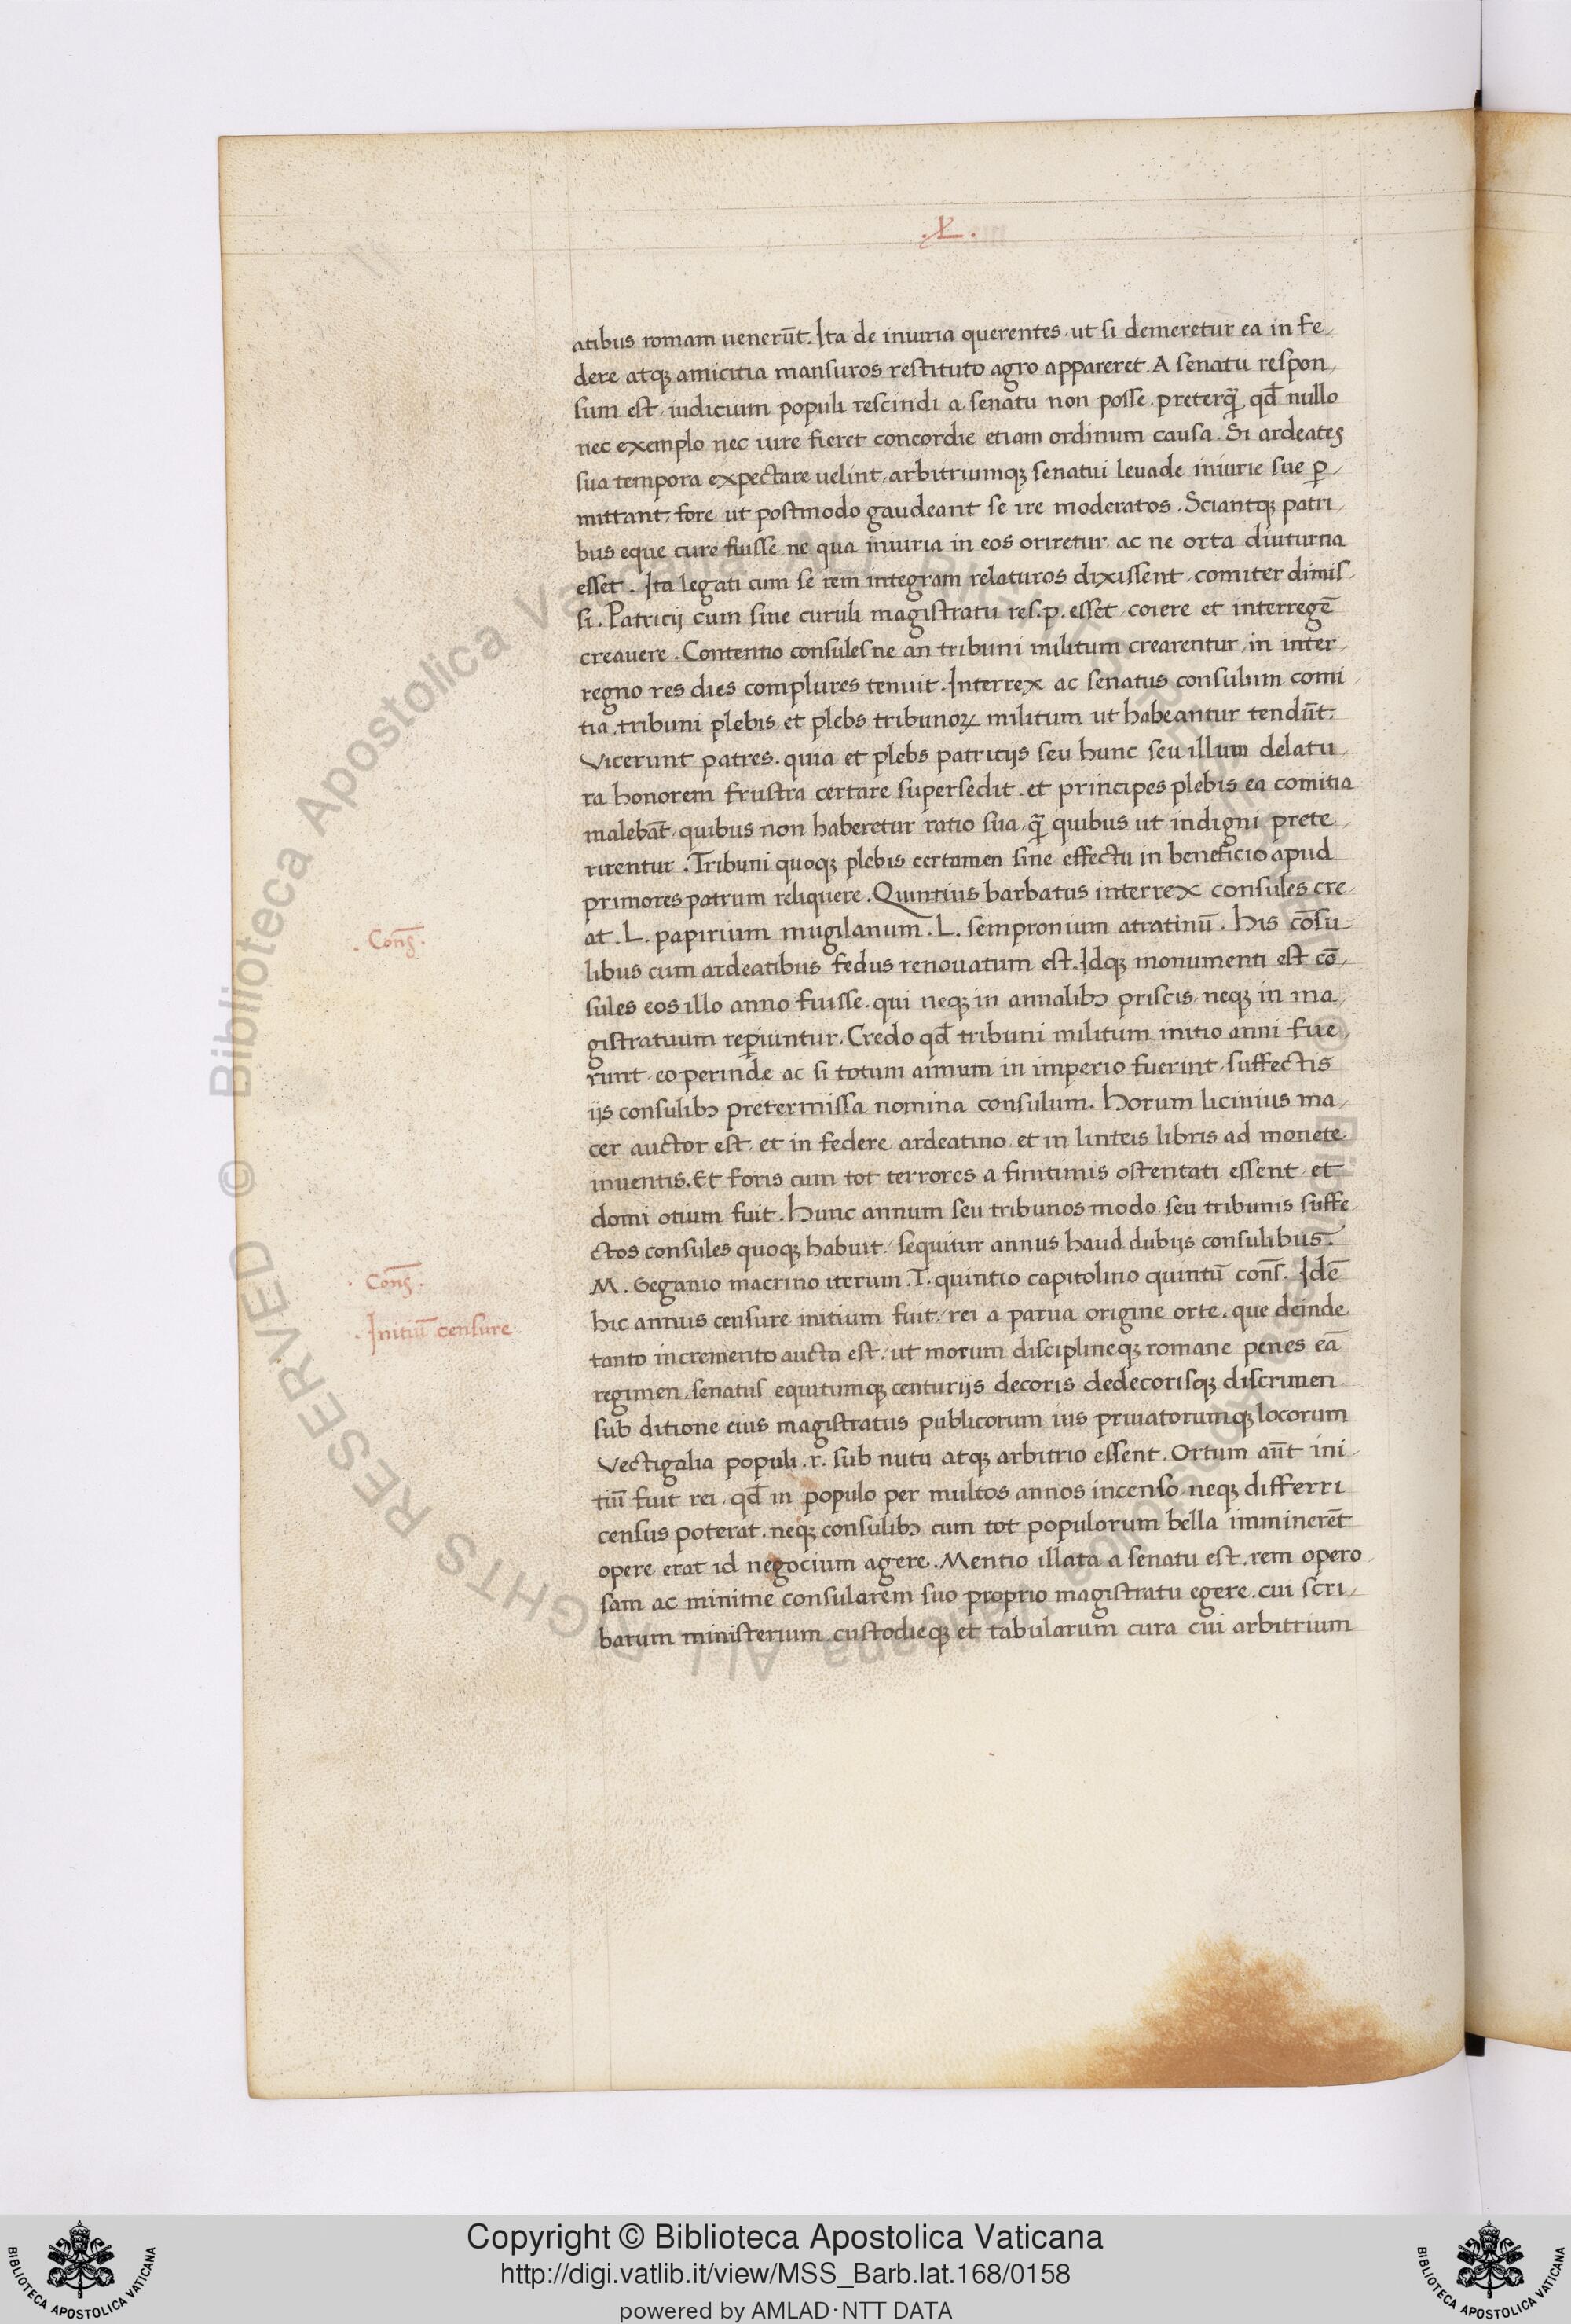 .L.
atibus romam uenerūt. Ita de iniuria querentes, ut si demeretur ea in fe-
dere atqꝫ amicitia mansuros restituto agro appareret. A senatu respon-
sum est, iudicium populi rescindi a senatu non posse, preterqꝫ̄ qđ nullo
nec exemplo nec iure fieret concordie etiam ordinum causa. Si ardeates
sua tempora expectare uelint, arbitriumqꝫ senatui leuade iniurie sue ꝑ-
mittant, fore ut postmodo gaudeant se ire moderatos. Sciantqꝫ patri-
bus eque cure fuisse ne qua iniuria in eos oriretur ac ne orta diuturna
esset. Ita legati cum se rem integram relaturos dixissent, comiter dimis-
si. Patricij cum sine curuli magistratu res. p. esset coiere et interregē
creauere. Contentio consules ne an tribuni militum crearentur, in inter-
regno res dies complures tenuit. Interrex ac senatus consulum comi-
tia, tribuni plebis et plebs tribunoꝝ militum ut habeantur tendūt.
Vicerunt patres. quia et plebs patricijs seu hunc seu illum delatu-
ra honorem frustra certare supersedit. et principes plebis ea comitia
malebāt, quibus non haberetur ratio sua, qꝫ̄ quibus ut indigni prete-
rirentur. Tribuni quoqꝫ plebis certamen sine effectu in beneficio apud
primores patrum reliquere. Quintius barbatus interrex consules cre-
at. L. papirium mugilanum. L. sempronium atratinū. His cōsu-
.Conꝭ.
libus cum ardeatibus fedus renouatum est. Idqꝫ monumenti est cō-
sules eos illo anno fuisse. qui neqꝫ in annalibꝫ priscis neqꝫ in ma-
gistratuum reꝑiuntur. Credo qđ tribuni militum initio anni fue-
runt, eo perinde ac si totum annum in imperio fuerint, suffectis
ijs consulibꝫ pretermissa nomina consulum. Horum licinius ma-
cer auctor est, et in federe ardeatino et in linteis libris ad monete
inuentis. Et foris cum tot terrores a finitimis ostentati essent et
domi otium fuit. Hunc annum seu tribunos modo, seu tribunis suffe-
ctos consules quoqꝫ habuit. sequitur annus haud dubijs consulibus.
M. Geganio macrino iterum. T. quintio capitolino quintū conš. Idē
.Conꝭ.
hic annus censure initium fuit, rei a parua origine orte. que deinde
.Initiū censure.
tanto incremento aucta est, ut morum disciplineqꝫ romane penes eā
regimen, senatus equitumqꝫ centurijs decoris dedecorisqꝫ discrimen
sub ditione eius magistratus publicorum ius priuatorumqꝫ locorum
Vectigalia populi. r. sub nutu atqꝫ arbitrio essent. Ortum aūt ini-
tiū fuit rei, qđ in populo per multos annos incenso neqꝫ differri
census poterat. neqꝫ consulibꝫ cum tot populorum bella imminerēt
opere erat id negocium agere. Mentio illata a senatu est. rem opero-
sam ac minime consularem suo proprio magistratu egere. cui scri-
barum ministerium, custodieqꝫ et tabularum cura cui arbitrium
© Biblioteca Apostolica Vaticana ALL RIGHTS RESERVED
Copyright © Biblioteca Apostolica Vaticana
http://digi.vatlib.it/view/MSS_Barb.lat.168/0158
powered by AMLAD·NTT DATA
BIBLIOTECA APOSTOLICA VATICANA
BIBLIOTECA APOSTOLICA VATICANA